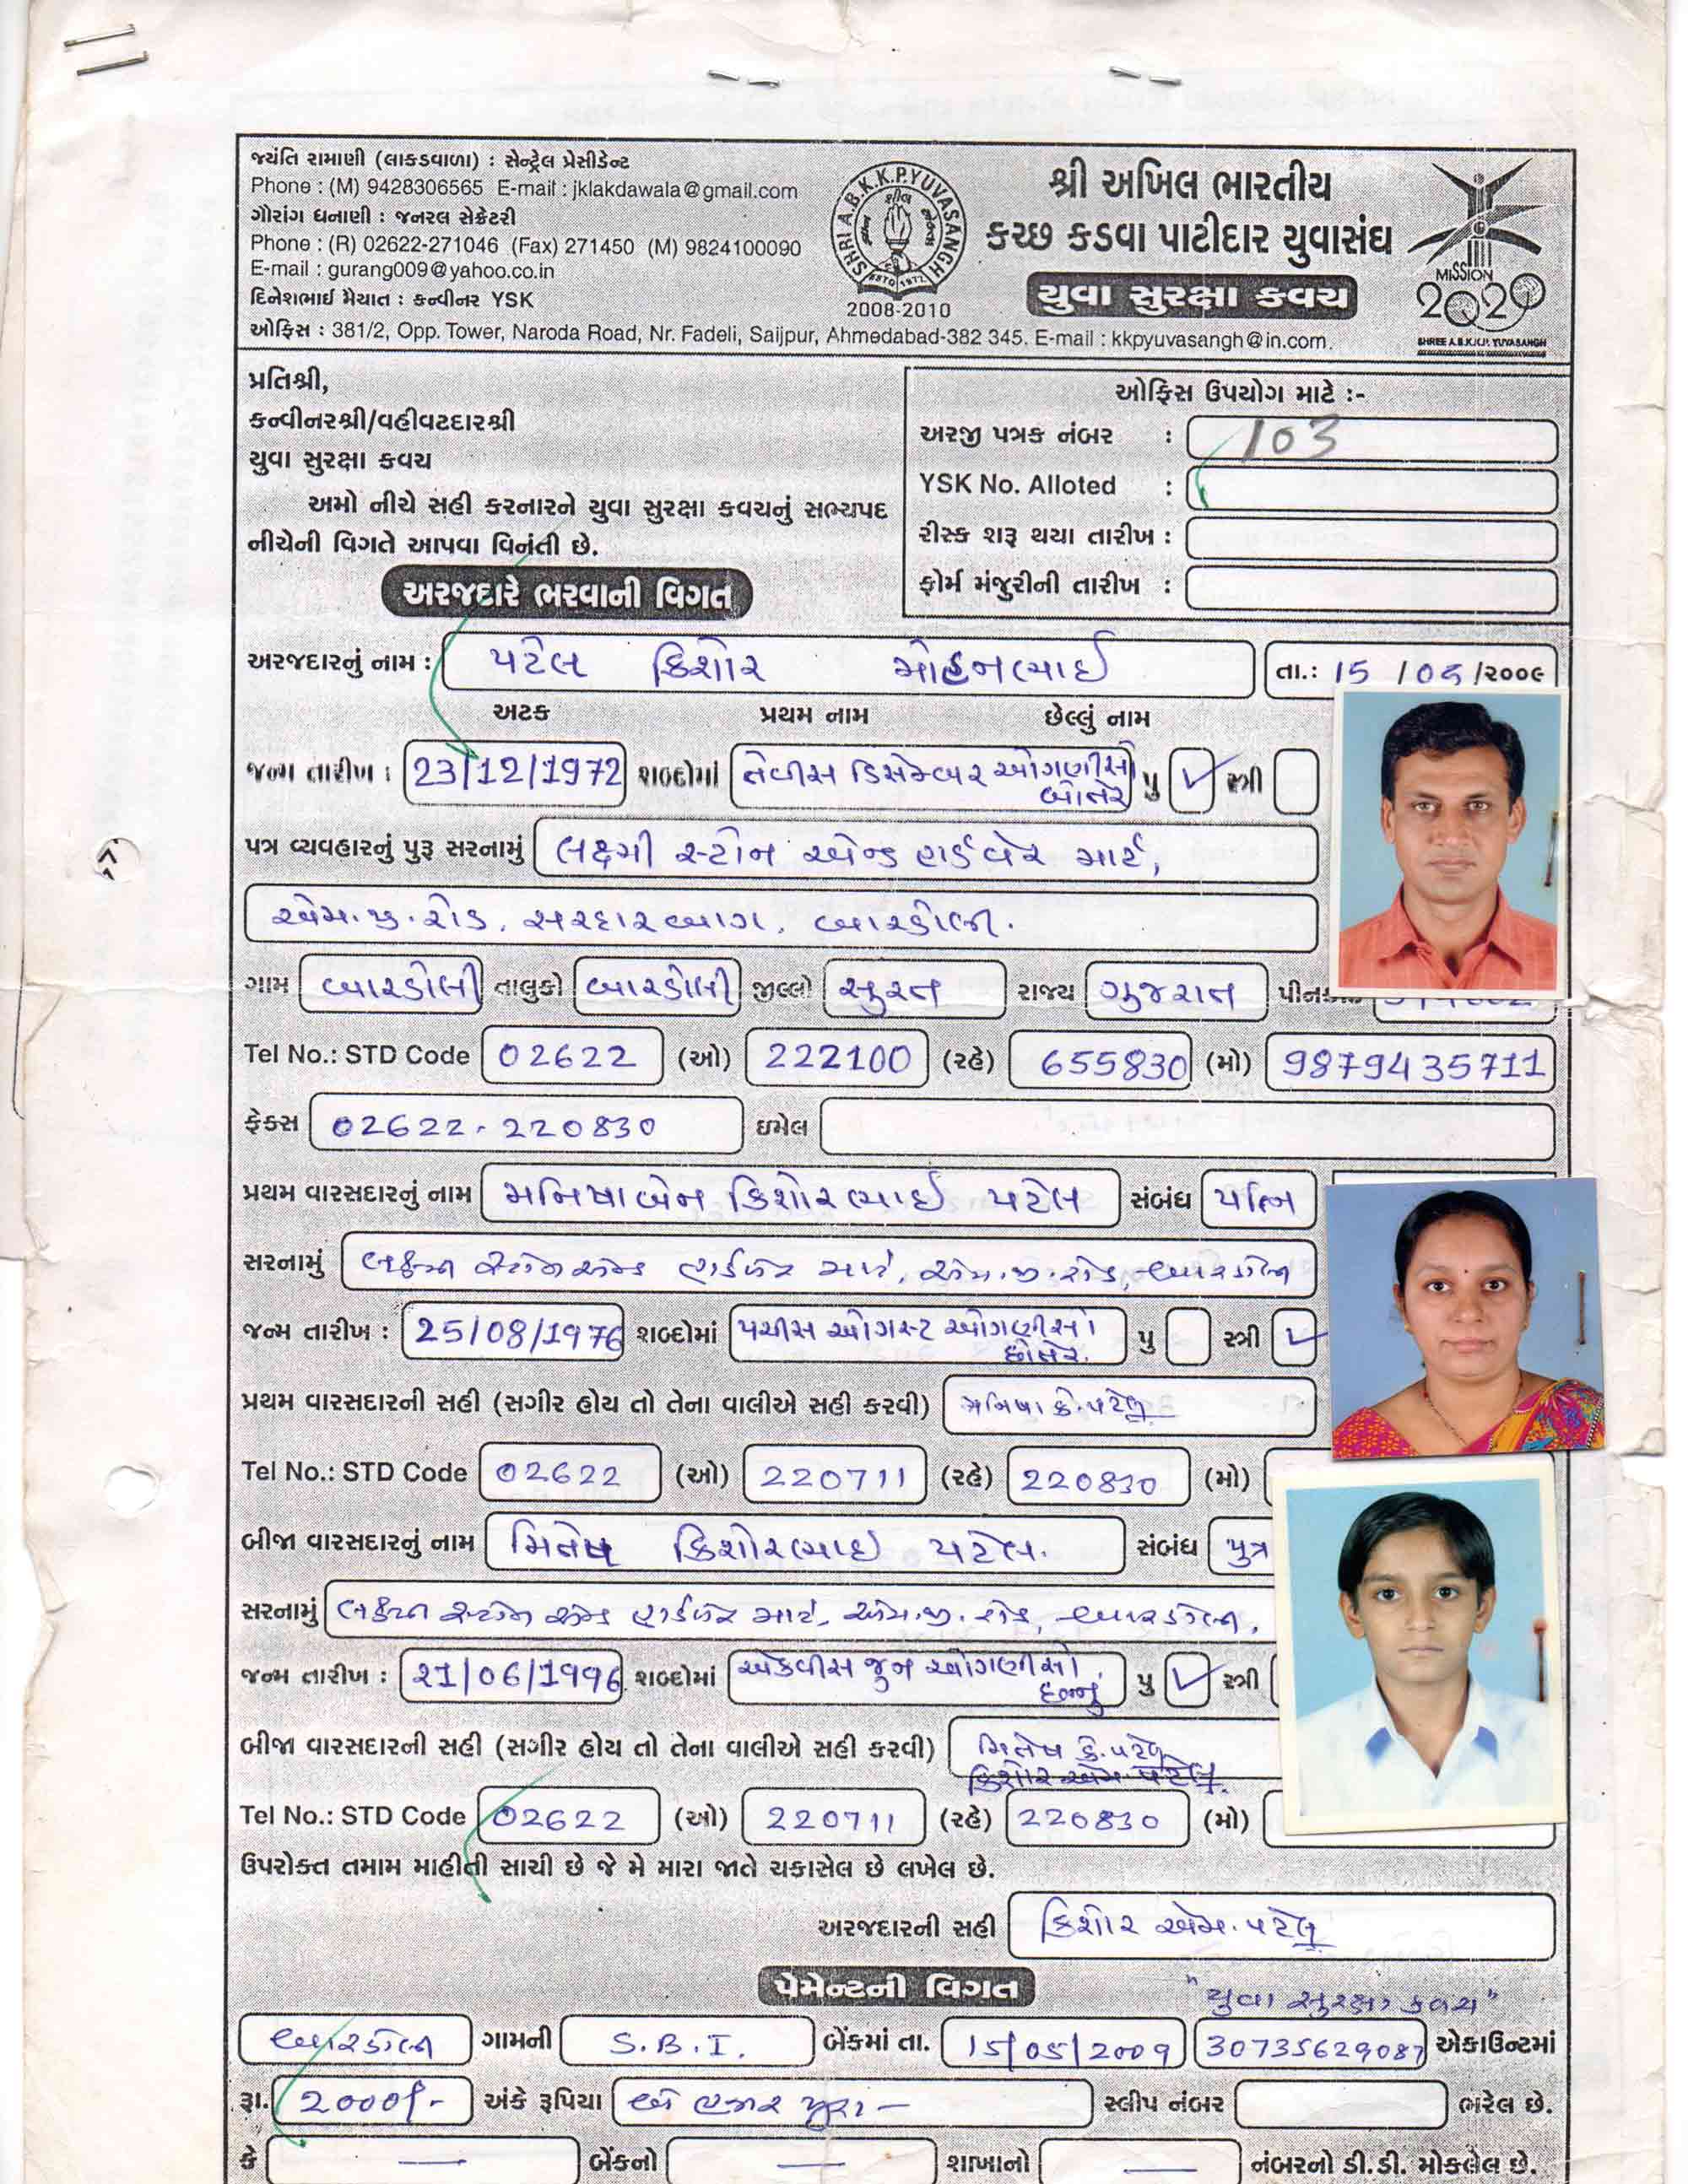 જ્યંતિ રામાણી (લાકડાવાળા) : સેન્ટ્રેલ પ્રેસીડેન્ટ
Phone : (M) 9428306565 E-mail : jklakdawala@gmail.com
ગૌરાંગ ધનાણી : જનરલ સેક્રેટરી
Phone : (R) 02622-271046 (Fax) 271450 (M) 9824100090
E-mail : gurang009@yahoo.co.in
દિનેશભાઈ મૈયાત : કન્વીનર YSK
SHRI A.B.K.K.P. YUVASANGH
ESTD 1972
2008-2010
શ્રી અખિલ ભારતીય
કચ્છ કડવા પાટીદાર યુવાસંઘ
યુવા સુરક્ષા કવચ
MISSION
2020
SHREE A.B.K.K.P. YUVA SANGH
ઓફિસ : 381/2, Opp. Tower, Naroda Road, Nr. Fadeli, Saijpur, Ahmedabad-382 345. E-mail : kkpyuvasangh@in.com.
પ્રતિશ્રી,
કન્વીનરશ્રી/વહીવટદારશ્રી
યુવા સુરક્ષા કવચ
અમો નીચે સહી કરનારને યુવા સુરક્ષા કવચનું સભ્યપદ
નીચેની વિગતે આપવા વિનંતી છે.
ઓફિસ ઉપયોગ માટે :-
અરજી પત્રક નંબર : 103
YSK No. Alloted :
રીસ્ક શરૂ થયા તારીખ :
ફોર્મ મંજુરીની તારીખ :
અરજદારે ભરવાની વિગત
અરજદારનું નામ : પટેલ કિશોર મોહનભાઈ તા.: 15 / 05 /૨૦૦૯
અટક પ્રથમ નામ છેલ્લું નામ
જન્મ તારીખ : 23/12/1972 શબ્દોમાં તેવીસ ડિસેમ્બર ઓગણીસો બોતેર પુ ✓ સ્ત્રી
પત્ર વ્યવહારનું પુરૂ સરનામું લક્ષ્મી સ્ટોન એન્ડ હાર્ડવેર માર્ટ,
એમ.જી.રોડ, સરદારબાગ, બારડોલી.
ગામ બારડોલી તાલુકો બારડોલી જીલ્લો સુરત રાજ્ય ગુજરાત
Tel No.: STD Code 02622 (ઓ) 222100 (રહે) 655830 (મો) 9879435711
ફેક્સ 02622-220830 ઇમેલ
પ્રથમ વારસદારનું નામ મનિષાબેન કિશોરભાઈ પટેલ સંબંધ પત્નિ
સરનામું લક્ષ્મી સ્ટોન એન્ડ હાર્ડવેર માર્ટ, એમ.જી.રોડ, બારડોલી
જન્મ તારીખ : 25/08/1976 શબ્દોમાં પચીસ ઓગસ્ટ ઓગણીસો છોતેર. પુ સ્ત્રી ✓
પ્રથમ વારસદારની સહી (સગીર હોય તો તેના વાલીએ સહી કરવી) મનિષા કે.પટેલ
Tel No.: STD Code 02622 (ઓ) 220711 (રહે) 220830 (મો)
બીજા વારસદારનું નામ મિતેષ કિશોરભાઇ પટેલ. સંબંધ પુત્ર
સરનામું લક્ષ્મી સ્ટોન એન્ડ હાર્ડવેર માર્ટ, એમ.જી. રોડ, બારડોલી,
જન્મ તારીખ : 21/06/1996 શબ્દોમાં એકવીસ જુન ઓગણીસો છન્નુ પુ ✓ સ્ત્રી
બીજા વારસદારની સહી (સગીર હોય તો તેના વાલીએ સહી કરવી) મિતેષ કે.પટેલ
કિશોર એમ. પટેલ.
Tel No.: STD Code 02622 (ઓ) 220711 (રહે) 220830 (મો)
ઉપરોક્ત તમામ માહીતી સાચી છે જે મે મારા જાતે ચકાસેલ છે લખેલ છે.
અરજદારની સહી કિશોર એમ.પટેલ
પેમેન્ટની વિગત "યુવા સુરક્ષા કવચ"
બારડોલી ગામની S.B.I. બેંકમાં તા. 15/05/2009 30735629087 એકાઉન્ટમાં
રૂા. 2000/- અંકે રૂપિયા બે હજાર પુરા - સ્લીપ નંબર ભરેલ છે.
કે — બેંકનો — શાખાનો — નંબરનો ડી.ડી. મોકલેલ છે.